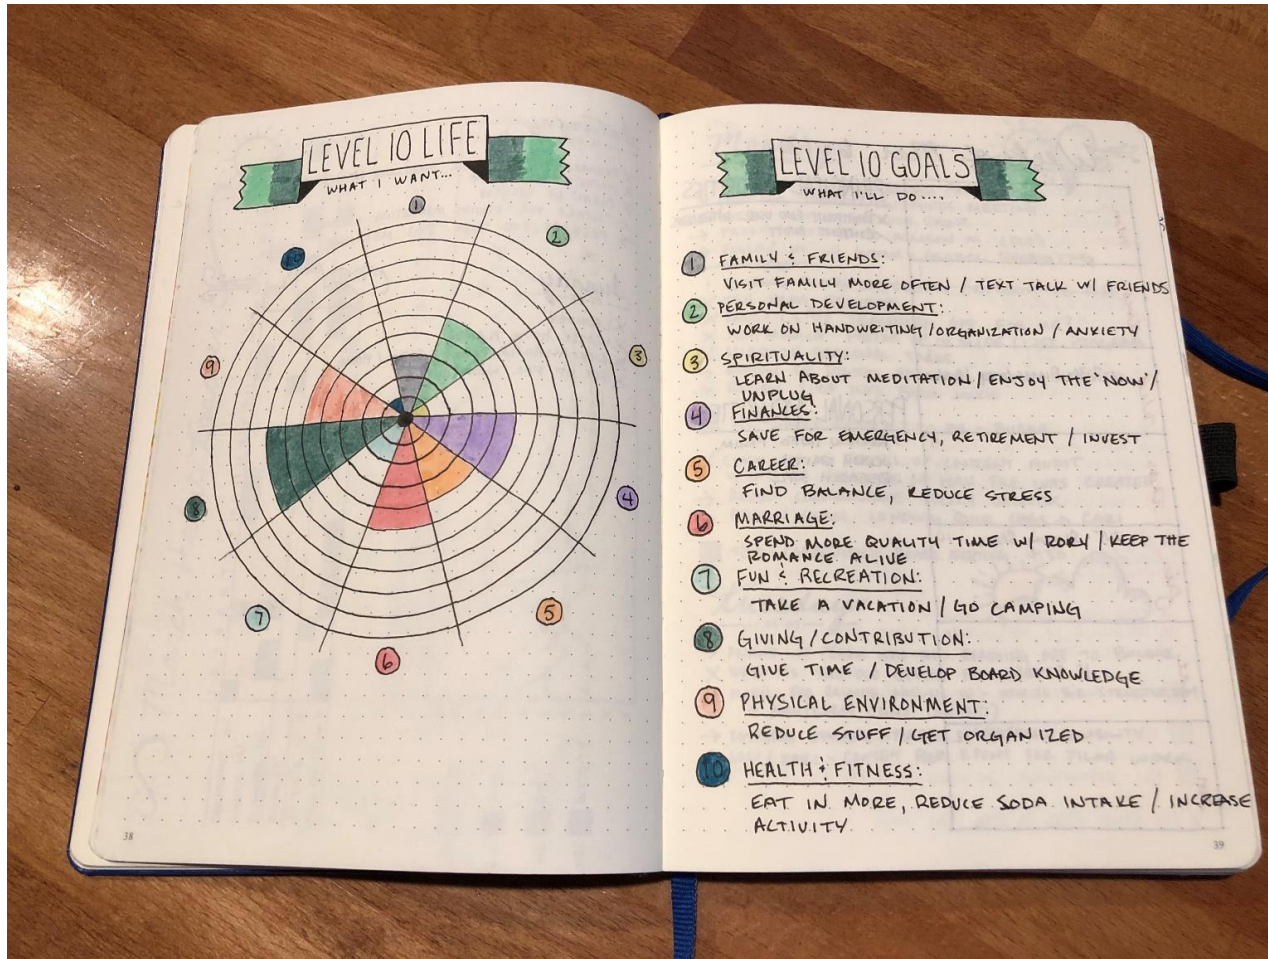 LEVEL 10 LIFE
WHAT I WANT...
1
2
3
4
5
6
7
8
9
10
38
LEVEL 10 GOALS
WHAT I'LL DO....
1 FAMILY & FRIENDS:
VISIT FAMILY MORE OFTEN / TEXT TALK W/ FRIENDS
2 PERSONAL DEVELOPMENT:
WORK ON HANDWRITING/ORGANIZATION / ANXIETY
3 SPIRITUALITY:
LEARN ABOUT MEDITATION/ENJOY THE 'NOW'/
UNPLUG
4 FINANCES:
SAVE FOR EMERGENCY, RETIREMENT / INVEST
5 CAREER:
FIND BALANCE, REDUCE STRESS
6 MARRIAGE:
SPEND MORE QUALITY TIME W/ RORY / KEEP THE
ROMANCE ALIVE
7 FUN & RECREATION:
TAKE A VACATION / GO CAMPING
8 GIVING/CONTRIBUTION:
GIVE TIME / DEVELOP BOARD KNOWLEDGE
9 PHYSICAL ENVIRONMENT:
REDUCE STUFF/GET ORGANIZED
10 HEALTH & FITNESS:
EAT IN MORE, REDUCE SODA INTAKE / INCREASE
ACTIVITY
39